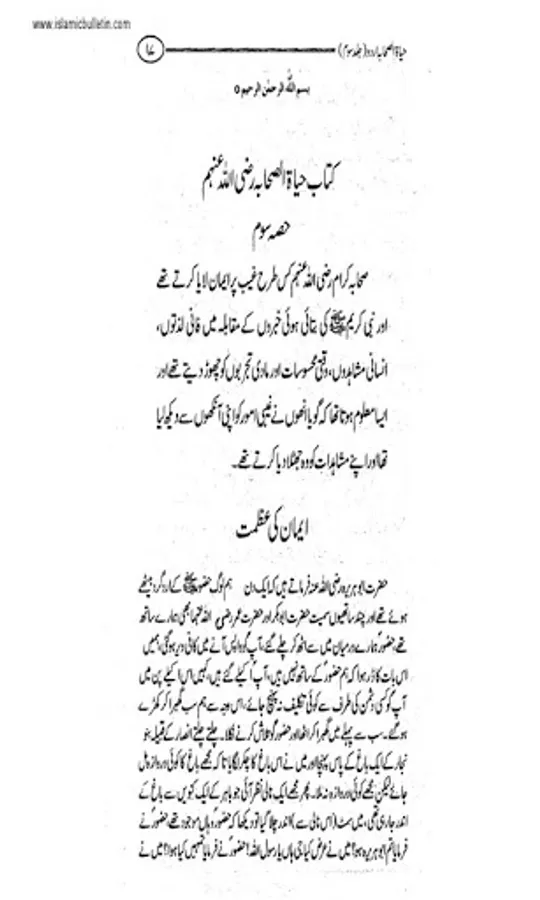 www.islamicbulletin.com
حیاۃ الصحابہ اردو (جلد سوم) ۱۷
بسم اللہ الرحمٰن الرحیم ○
کتاب حیاۃ الصحابہ رضی اللہ عنہم
حصہ سوم
صحابہ کرام رضی اللہ عنہم کس طرح غیب پر ایمان لایا کرتے تھے
اور نبی کریم ﷺ کی بتائی ہوئی خبروں کے مقابلہ میں فانی لذتوں،
انسانی مشاہدوں، وقتی محسوسات اور مادی تجربوں کو چھوڑ دیتے تھے اور
ایسا معلوم ہوتا تھا کہ گویا انھوں نے غیبی امور کو اپنی آنکھوں سے دیکھ لیا
تھا اور اپنے مشاہدات کو وہ جھٹلا دیا کرتے تھے۔
ایمان کی عظمت
حضرت ابو ہریرہ رضی اللہ عنہ فرماتے ہیں کہ ایک دن ہم لوگ حضور ﷺ کے ارد گرد بیٹھے
ہوئے تھے اور چند ساتھیوں سمیت حضرت ابوبکر اور حضرت عمر رضی اللہ عنہما بھی ہمارے ساتھ
تھے، حضورؐ ہمارے درمیان میں سے اٹھ کر چلے گئے، آپؐ کو واپس آنے میں کافی دیر ہو گئی، ہمیں
اس بات کا ڈر ہوا کہ ہم حضورؐ کے ساتھ نہیں ہیں، آپؐ اکیلے گئے ہیں، کہیں اس اکیلے پن میں
آپؐ کو کسی دشمن کی طرف سے کوئی تکلیف نہ پہنچ جائے، اس وجہ سے ہم سب گھبرا کر کھڑے
ہو گئے۔ سب سے پہلے میں گھبرا کر اٹھا اور حضورؐ کو تلاش کرنے نکلا۔ چلتے چلتے انصار کے قبیلہ بنو
نجار کے ایک باغ کے پاس پہنچا اور میں نے اس باغ کا چکر لگایا تاکہ مجھے باغ کا کوئی دروازہ مل
جائے لیکن مجھے کوئی دروازہ نہ ملا۔ پھر مجھے ایک نالی نظر آئی جو باہر کے ایک کنویں سے باغ کے
اندر جا رہی تھی، میں سمٹ (اس نالی سے) اندر چلا گیا تو دیکھا کہ حضورؐ وہاں موجود تھے، حضورؐ نے
فرمایا تم ابو ہریرہ ہو؟ میں نے عرض کیا جی ہاں یا رسول اللہ! حضورؐ نے فرمایا تمہیں کیا ہوا؟ میں نے